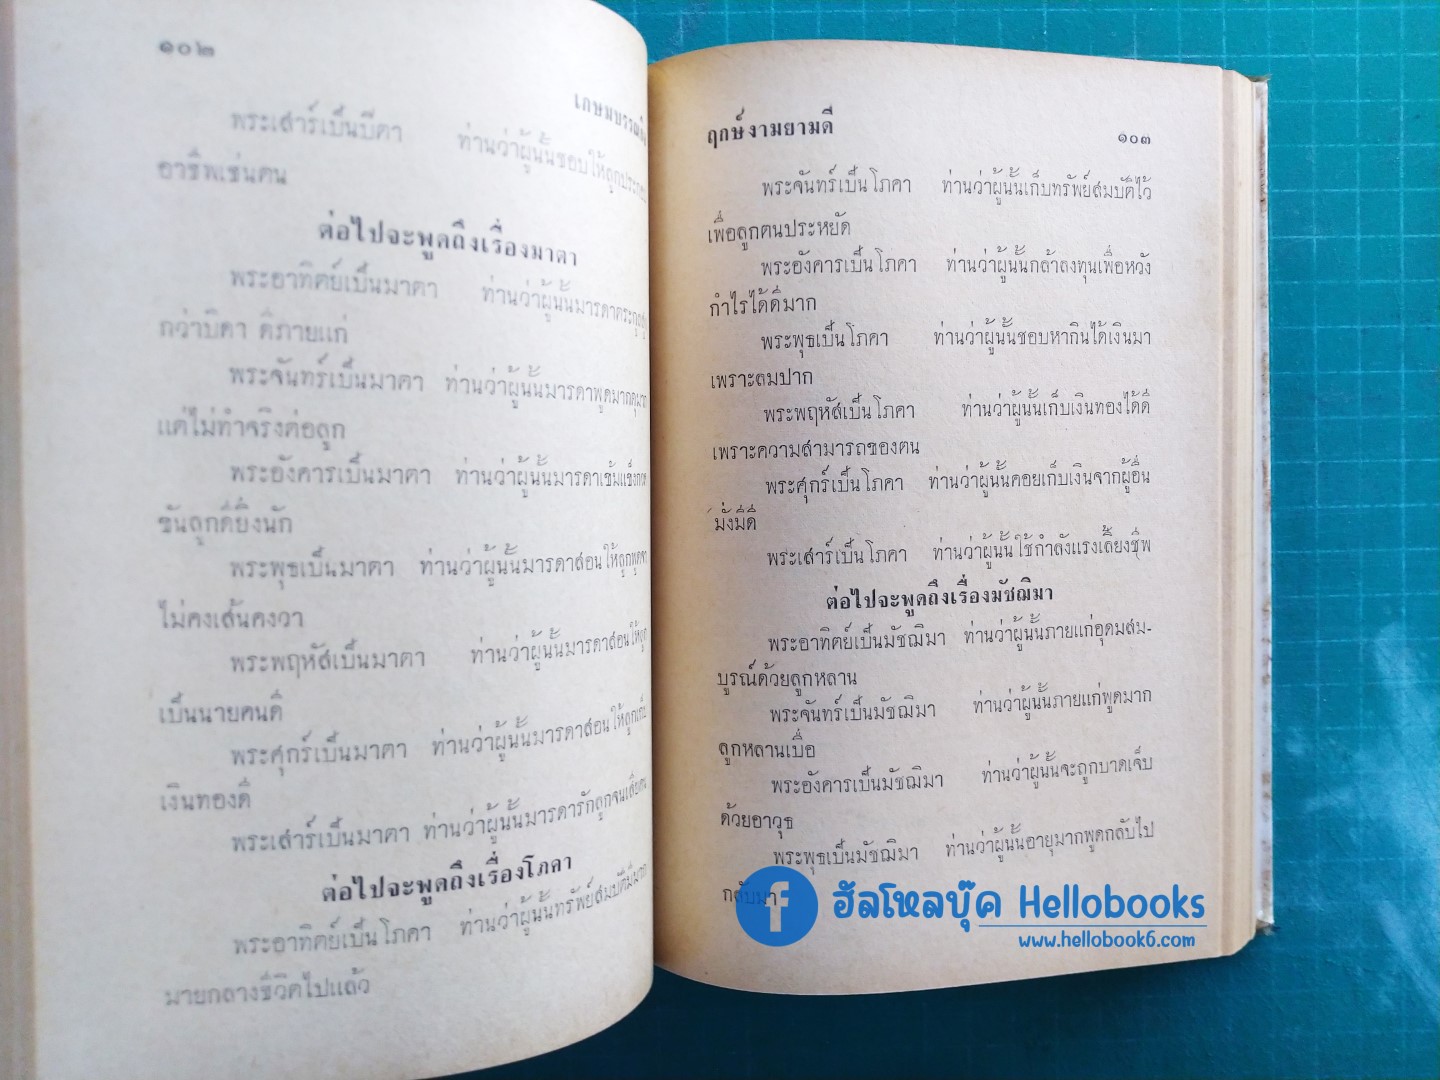 ๑๐๒
พระเสาร์เป็นปิตา ท่านว่าผู้นั้นชอบให้ลูกประกอบ
อาชีพเช่นตน
ต่อไปจะพูดถึงเรื่องมาตา
พระอาทิตย์เป็นมาตา ท่านว่าผู้นั้นมารดาตระกูลสูง
กว่าบิดา ดีภายแก่
พระจันทร์เป็นมาตา ท่านว่าผู้นั้นมารดาพูดมากดุมาก
แต่ไม่ทำจริงต่อลูก
พระอังคารเป็นมาตา ท่านว่าผู้นั้นมารดาเข้มแข็งกวด
ขันลูกดียิ่งนัก
พระพุธเป็นมาตา ท่านว่าผู้นั้นมารดาสอนให้ลูกพูดจา
ไม่คงเส้นคงวา
พระพฤหัสเป็นมาตา ท่านว่าผู้นั้นมารดาสอนให้ลูก
เป็นนายคนดี
พระศุกร์เป็นมาตา ท่านว่าผู้นั้นมารดาสอนให้ลูกเก็บ
เงินทองดี
พระเสาร์เป็นมาตา ท่านว่าผู้นั้นมารดารักลูกจนเสียคน
ต่อไปจะพูดถึงเรื่องโภคา
พระอาทิตย์เป็นโภคา ท่านว่าผู้นั้นทรัพย์สมบัติมีมาก
มายกลางชีวิตไปแล้ว
ฤกษ์งามยามดี ๑๐๓
พระจันทร์เป็นโภคา ท่านว่าผู้นั้นเก็บทรัพย์สมบัติไว้
เพื่อลูกตนประหยัด
พระอังคารเป็นโภคา ท่านว่าผู้นั้นกล้าลงทุนเพื่อหวัง
กำไรได้ดีมาก
พระพุธเป็นโภคา ท่านว่าผู้นั้นชอบหากินได้เงินมา
เพราะลมปาก
พระพฤหัสเป็นโภคา ท่านว่าผู้นั้นเก็บเงินทองได้ดี
เพราะความสามารถของตน
พระศุกร์เป็นโภคา ท่านว่าผู้นั้นคอยเก็บเงินจากผู้อื่น
มั่งมีดี
พระเสาร์เป็นโภคา ท่านว่าผู้นั้นใช้กำลังแรงเลี้ยงชีพ
ต่อไปจะพูดถึงเรื่องมัชฌิมา
พระอาทิตย์เป็นมัชฌิมา ท่านว่าผู้นั้นภายแก่อุดมสม-
บูรณ์ด้วยลูกหลาน
พระจันทร์เป็นมัชฌิมา ท่านว่าผู้นั้นภายแก่พูดมาก
ลูกหลานเบื่อ
พระอังคารเป็นมัชฌิมา ท่านว่าผู้นั้นจะถูกบาดเจ็บ
ด้วยอาวุธ
พระพุธเป็นมัชฌิมา ท่านว่าผู้นั้นอายุมากพูดกลับไป
กลับมา
ฮัลโหลบุ๊ค Hellobooks
www.hellobook6.com